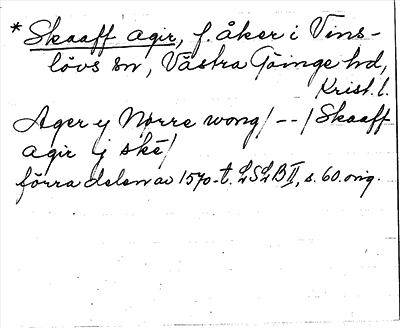 * Skaaff agir, f. åker i Vins-
lövs sn, Västra Göinge hd,
Krist. l.
Ager y Norre wong/ -- / Skaaff
agir y ske/
förra delen av 1570-t. LSLB II, s. 60. orig.